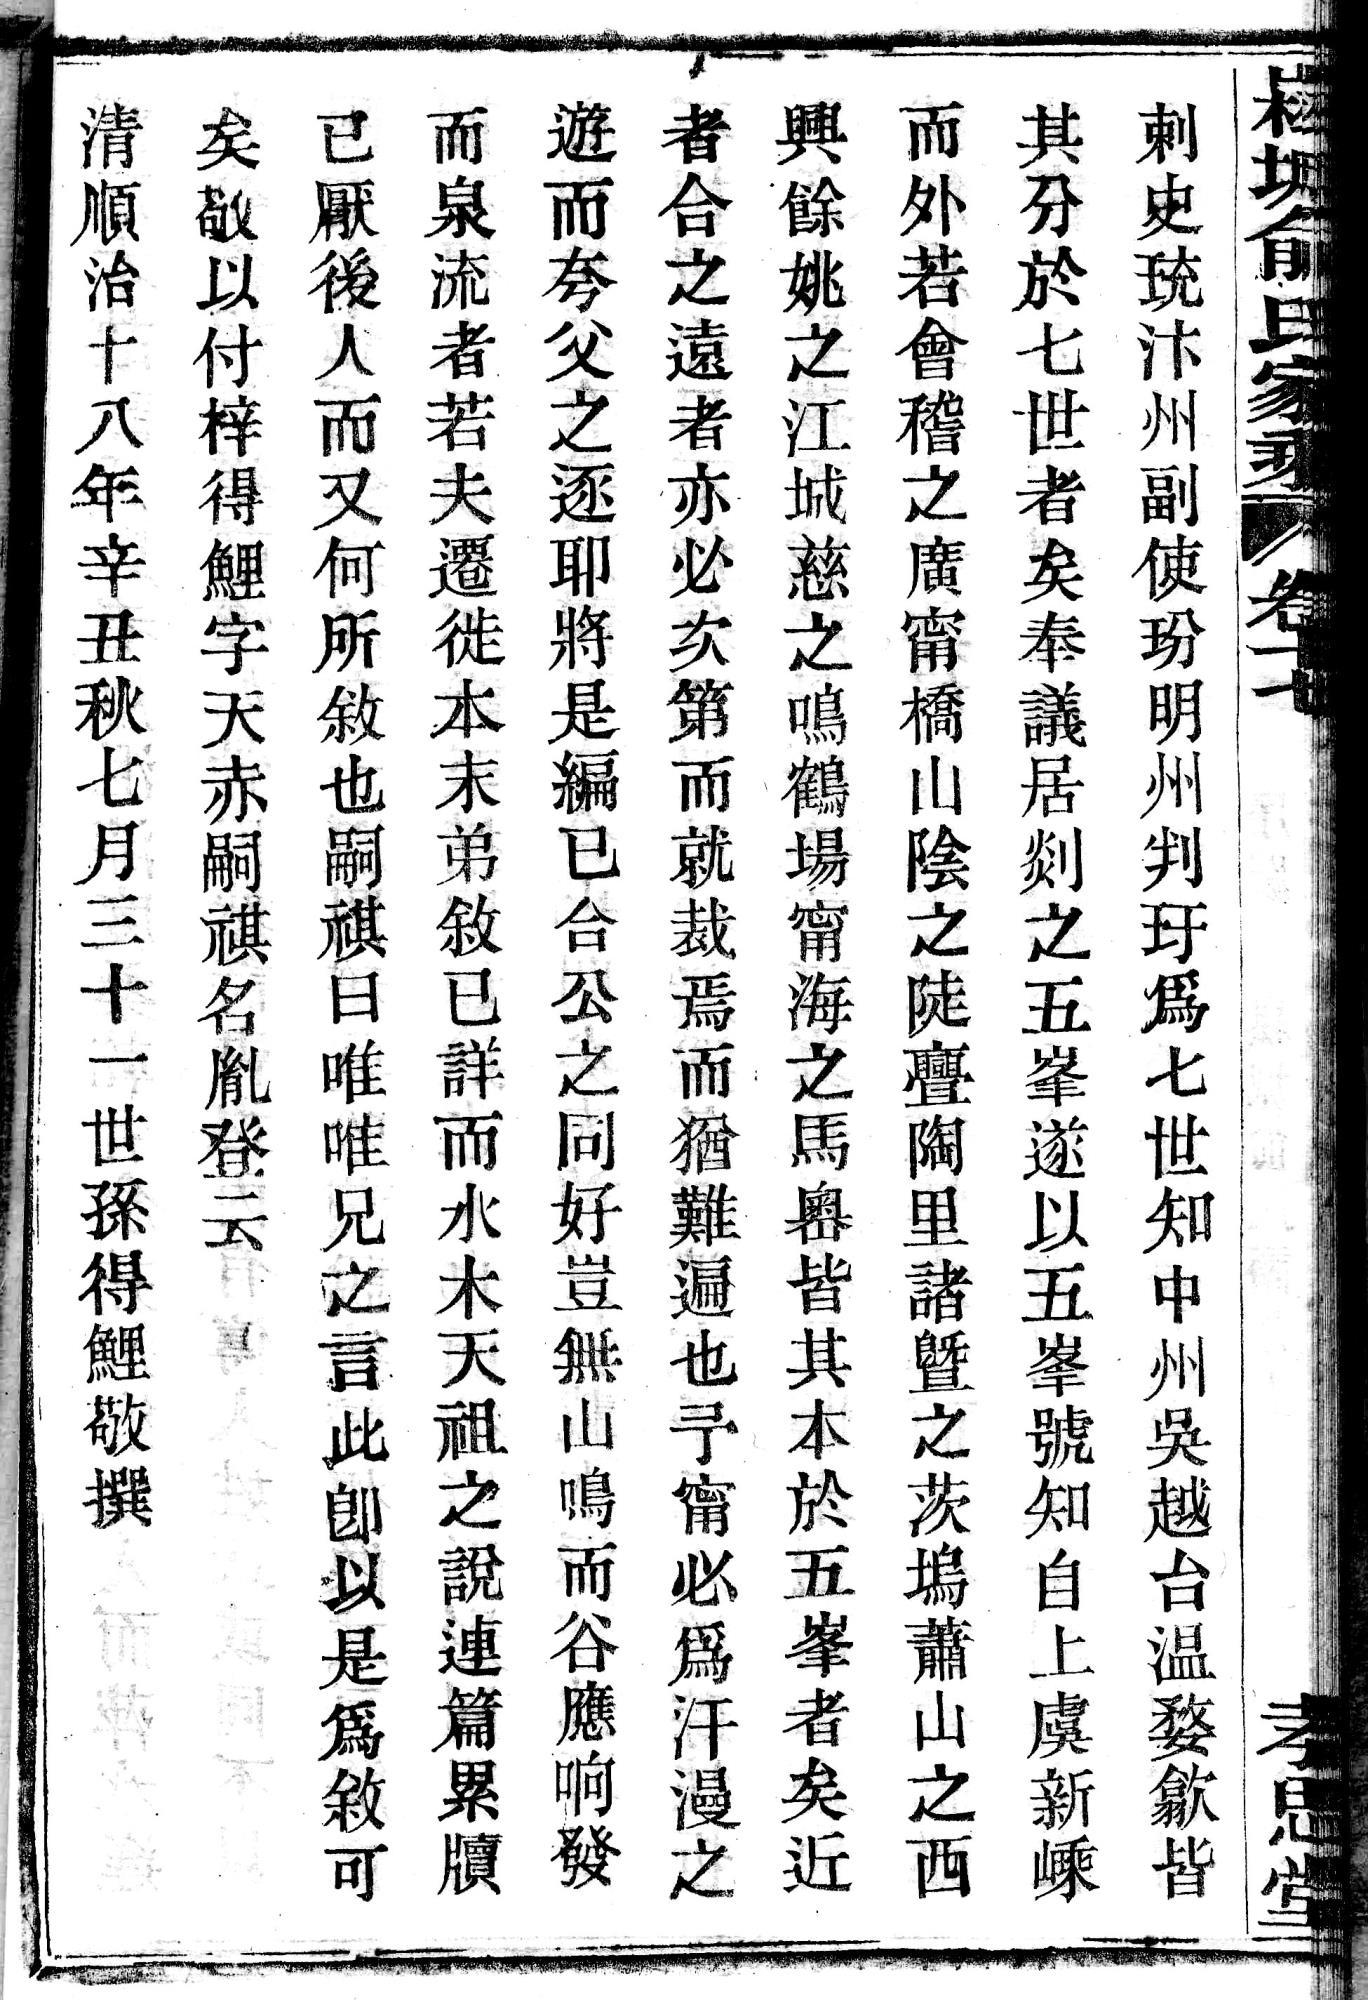 剌史珫汴州副使玢明州判玗爲七世知中州吳越台温婺歙皆
其分於七世者矣奉議居剡之五峯遂以五峯號知自上虞新嵊
而外若會稽之廣甯橋山陰之陡亹陶里諸暨之茨塢蕭山之西
興餘姚之江城慈之鳴鶴場甯海之馬嶴皆其本於五峯者矣近
者合之遠者亦必次第而就裁焉而猶難遍也予甯必爲汗漫之
遊而夸父之逐耶將是編已合公之同好豈無山鳴而谷應响發
而泉流者若夫遷徙本末弟敘已詳而水木天祖之說連篇累牘
已厭後人而又何所敘也嗣祺曰唯唯兄之言此卽以是爲敘可
矣敬以付梓得鯉字天赤嗣祺名胤登云
清順治十八年辛丑秋七月三十一世孫得鯉敬撰
俞氏家乘 卷十七 孝思堂